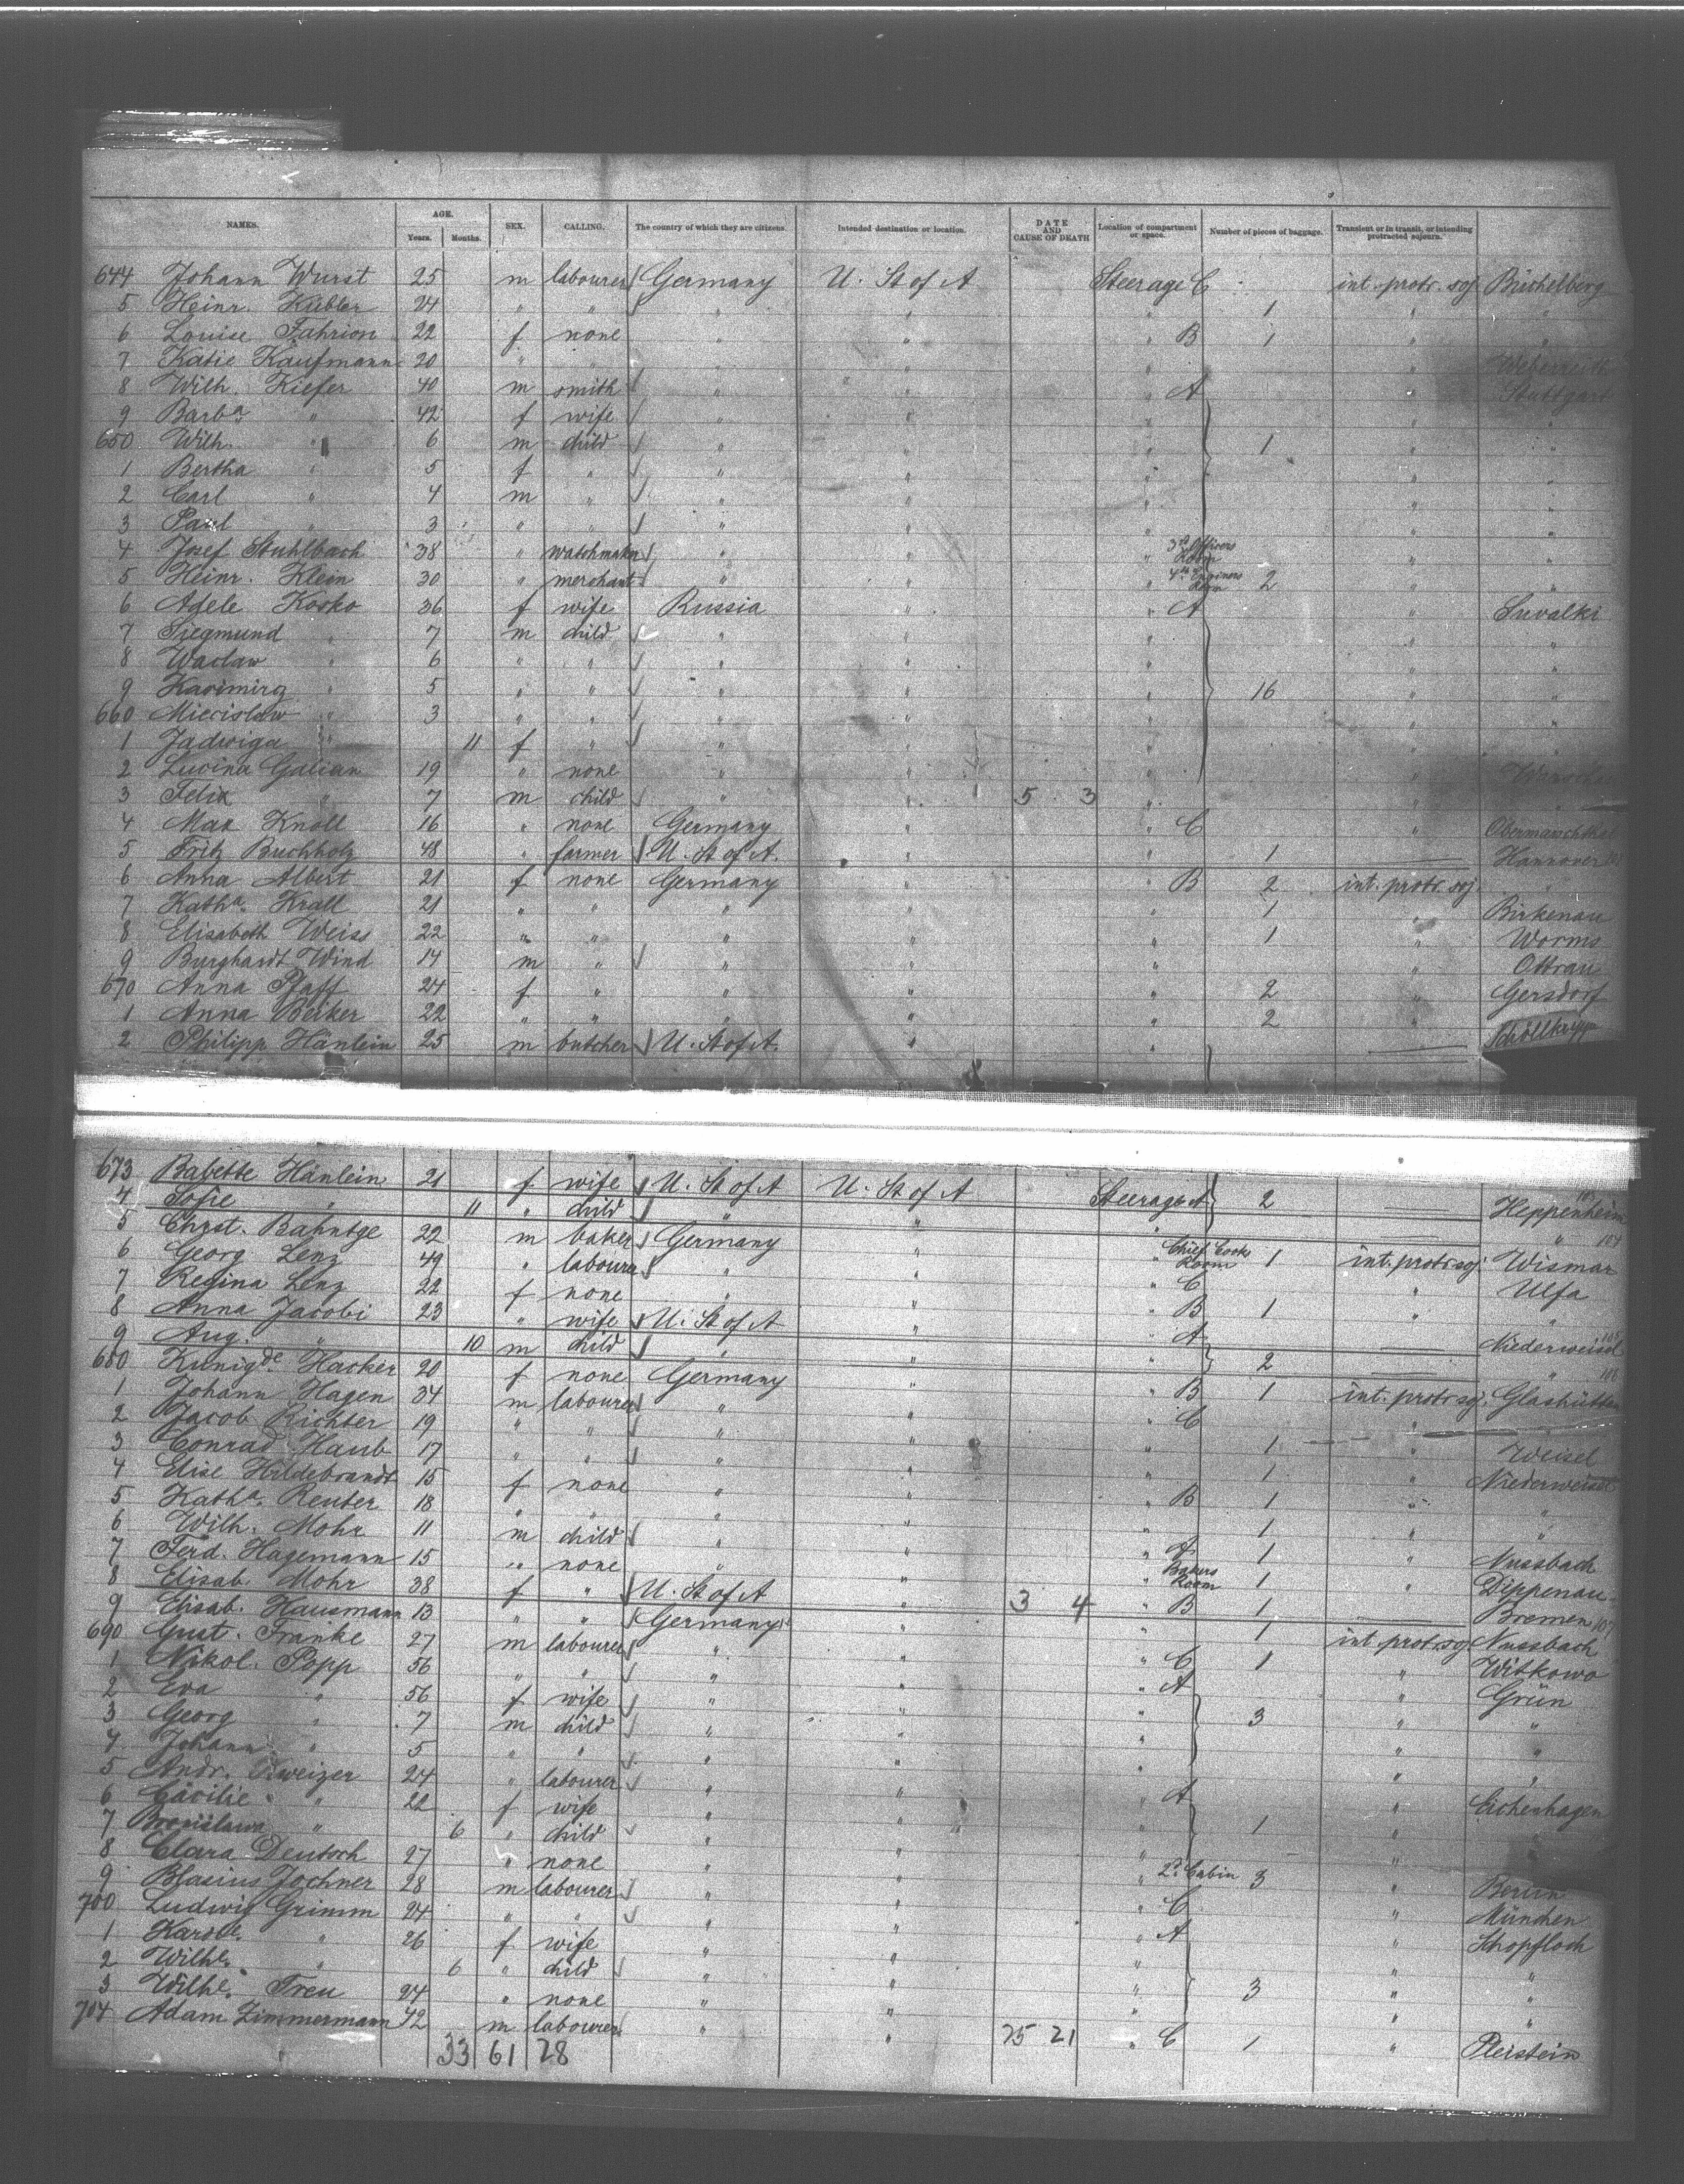 NAMES. AGE. Years. Months. SEX. CALLING. The country of which they are citizens. Intended destination or location. DATE AND CAUSE OF DEATH Location of compartment or space. Number of pieces of baggage. Transient or in transit, or intending protracted sojourn.
644 Johann Wurst 25 m labourer Germany U. St of A Steerage C int. protr. soj Büchelberg
5 Heinr. Kübler 24 " " " " " 1 " "
6 Louise Fahrion 22 f none " " " B 1 " "
7 Katie Kaufmann 20 " " " " " "
8 Wilh. Kiefer 40 m smith " " " A " Stuttgart
9 Barbª " 42 f wife " " " " "
650 Wilh. " 6 m child " " " 1 " "
1 Bertha " 5 f " " " " " "
2 Carl " 4 m " " " " " "
3 Paul " 3 " " " " " " "
4 Josef Stuhlbach 38 " watchmaker " " " 3rd Officers Room " "
5 Heinr. Klein 30 " merchant " " " 4th Engineers Room 2 " "
6 Adele Kosko 36 f wife Russia " " A " Suvalki
7 Siegmund " 7 m child " " " " "
8 Waclaw " 6 " " " " " " "
9 Kasimirz " 5 " " " " " 16 " "
660 Miecislaw " 3 " " " " " " "
1 Jadwiga " 11 f " " " " " "
2 Lucina Galian 19 " none " " " "
3 Felix " 7 m child " " 5 3 " " "
4 Max Knoll 16 " none Germany " " C "
5 Fritz Buchholz 48 " farmer U. St of A. " " 1 Hannover
6 Anna Albert 21 f none Germany " B 2 int. protr. soj "
7 Kathª Krall 21 " " " " " 1 " Birkenau
8 Elisabeth Weiss 22 " " " " " 1 " Worms
9 Burghardt Wind 14 m " " " " " Ottrau
670 Anna Pfaff 24 f " " " " 2 " Gersdorf
1 Anna Beiker 22 " " " " " 2 "
2 Philipp Hänlein 25 m butcher U. St of A. " " Schöllkripp
673 Babette Hänlein 21 f wife U. St of A U. St of A Steerage A 2 103 Heppenheim
4 Sofie " 11 " child " " " 104
5 Christ. Bahntge 22 m baker Germany " " Chief Cooks Room 1 int. protr. soj Wismar
6 Georg Lenz 49 " labourer " " " C " Ulfa
7 Regina Lenz 22 f none " " " B 1 " "
8 Anna Jacobi 23 " wife U. St of A " " A Niederweisel 105
9 Aug. " 10 m child " " " 2 " 106
680 Kunigde Hacker 20 f none Germany " " B 1 int. protr. soj. Glashütten
1 Johann Hagen 34 m labourer " " " C " "
2 Jacob Richter 19 " " " " " 1 " Weisel
3 Conrad Haub 17 " " " " " 1 " Niederweisel
4 Elise Hildebrandt 15 f none " " " B 1 " "
5 Kathª Reuter 18 " " " " " 1 " "
6 Wilh. Mohr 11 m child " " " A 1 " Nussbach
7 Ferd. Hagemann 15 " none " " " Bakers Room 1 " Dippenau
8 Elisab. Mohr 38 f " U. St of A " 3 4 " B 1 Bremen 107
9 Elisab. Hausmann 13 " " Germany " " 1 int. prot. soj Nussbach
690 Gust. Franke 27 m labourer " " " C 1 " Witkowo
1 Nikol. Popp 56 " " " " " A " Grün
2 Eva " 56 f wife " " " " "
3 Georg " 7 m child " " " 3 " "
4 Johann " 5 " " " " " " "
5 Andr. 24 " labourer " " " A " Eichenhagen
6 Cäcilie " 22 f wife " " " "
7 " 6 " child " " " 1 "
8 Clara Deutsch 27 " none " " " 2d Cabin 3 " Berlin
9 Blasius Jochner 28 m labourer " " " C " München
700 Ludwig Grimm 24 " " " " " A " Schopfloch
1 Karole " 26 f wife " " " " "
2 Wilhe " 6 " child " " " " "
3 Wilhe Treu 24 " none " " " 3 " "
704 Adam Zimmermann 42 m labourer " " " C 1 "
33 61 28 25 21